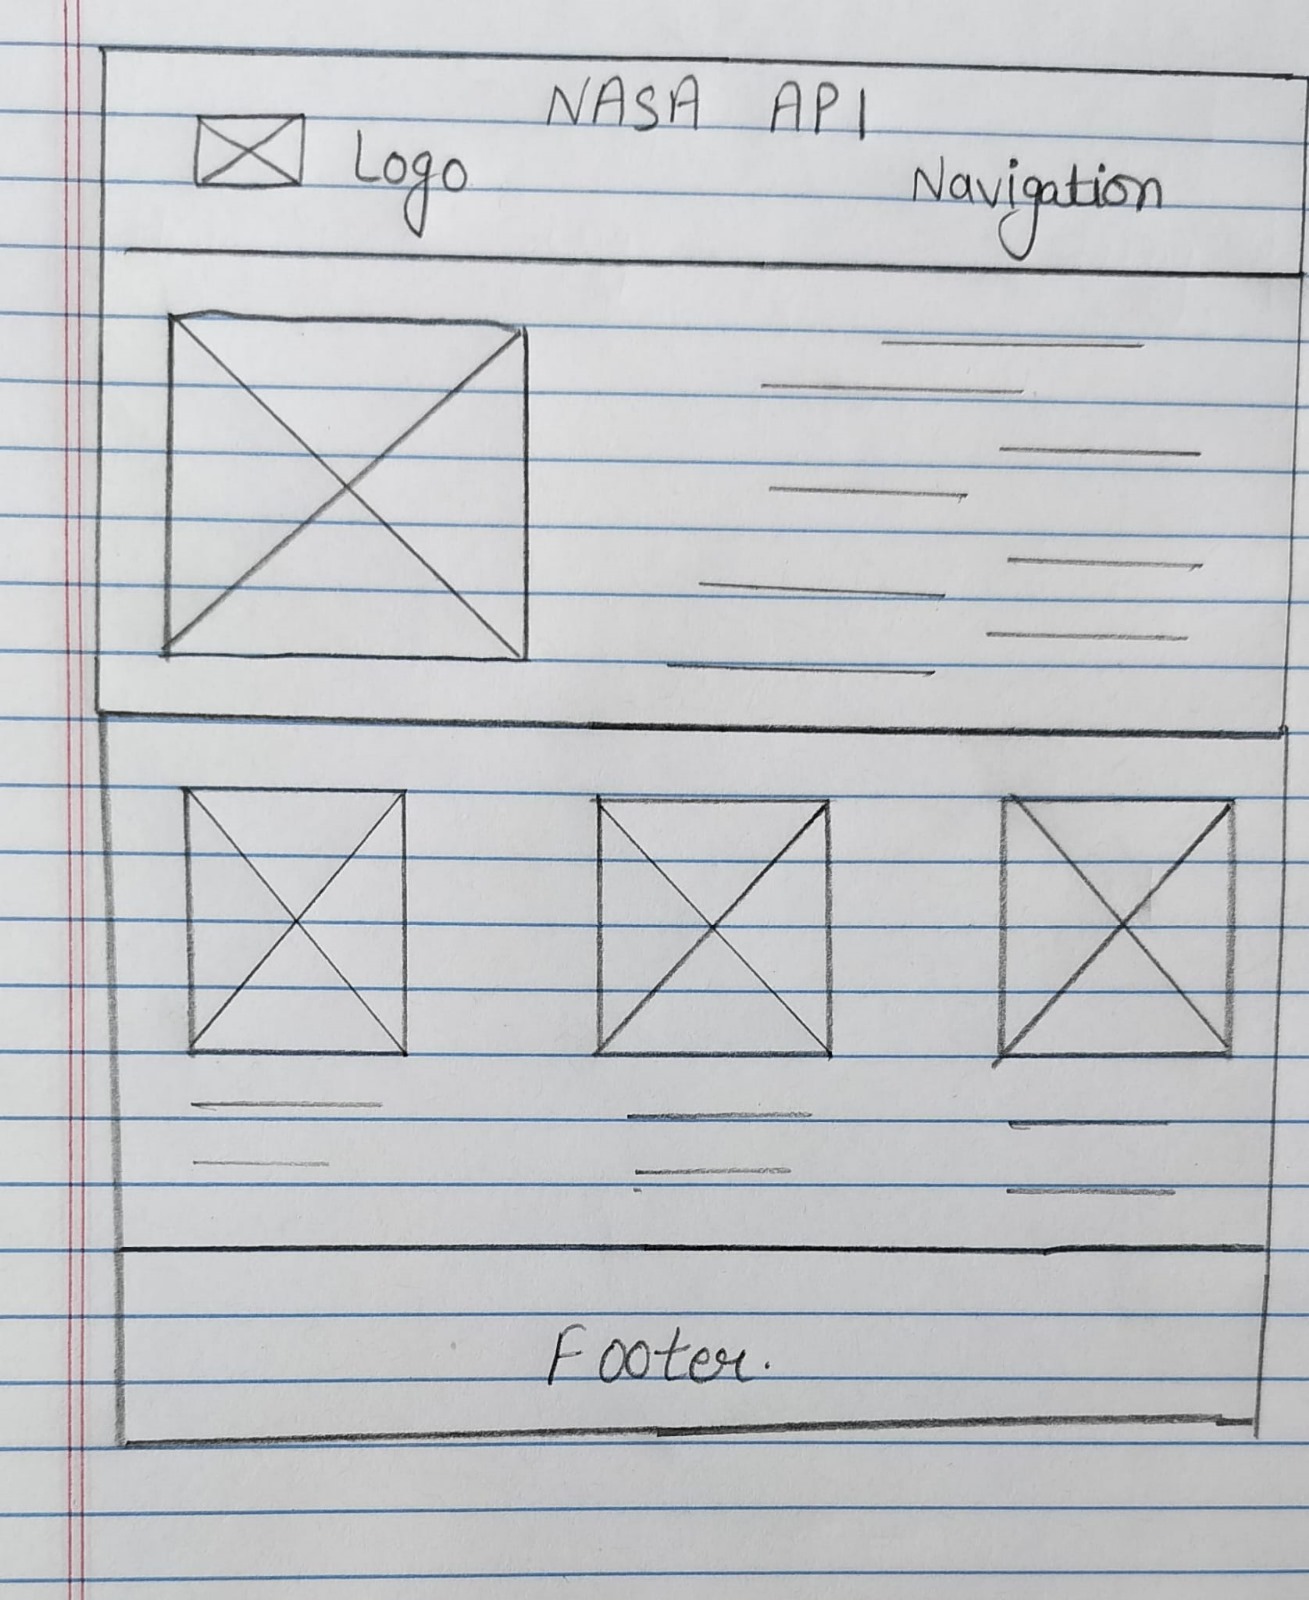 NASA API
Logo
Navigation
Footer.